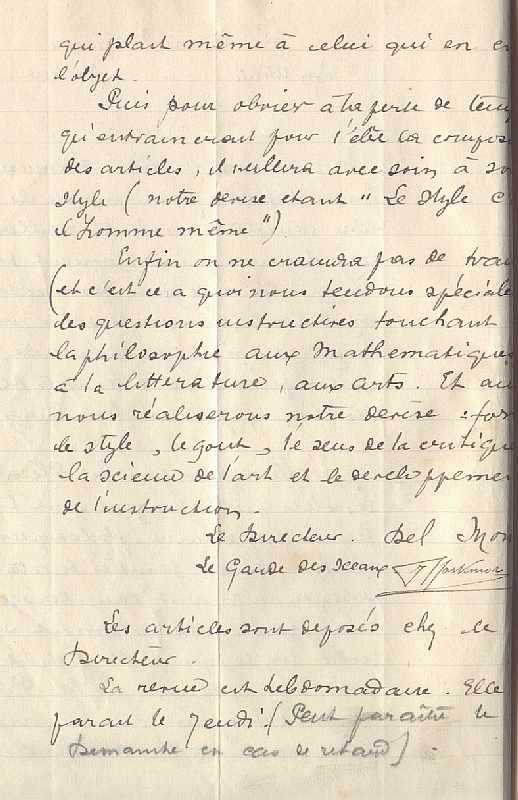 qui plait même à celui qui en e
l'objet.
Puis pour obvier à la perte de temp
qu'entraineront pour l'élite la compos
des articles, il veillera avec soin à so
style (notre devise etant "Le style c
l'homme même").
Enfin on ne craindra pas de trai
(et c'est ce a quoi nous tendons spéciale
des questions instructives touchant
la philosophie aux Mathematiques
à la litterature, aux arts. Et au
nous réaliserons notre devise : for
le style, le gout, le sens de la critique
la science de l'art et le developpemen
de l'instruction.
Le Directeur. Del Mon
Le Garde des Sceaux
Les articles sont deposés chez le
Directeur.
La revue est hebdomadaire. Elle
parait le Jeudi. (Peut paraître le
Dimanche en cas de retard).